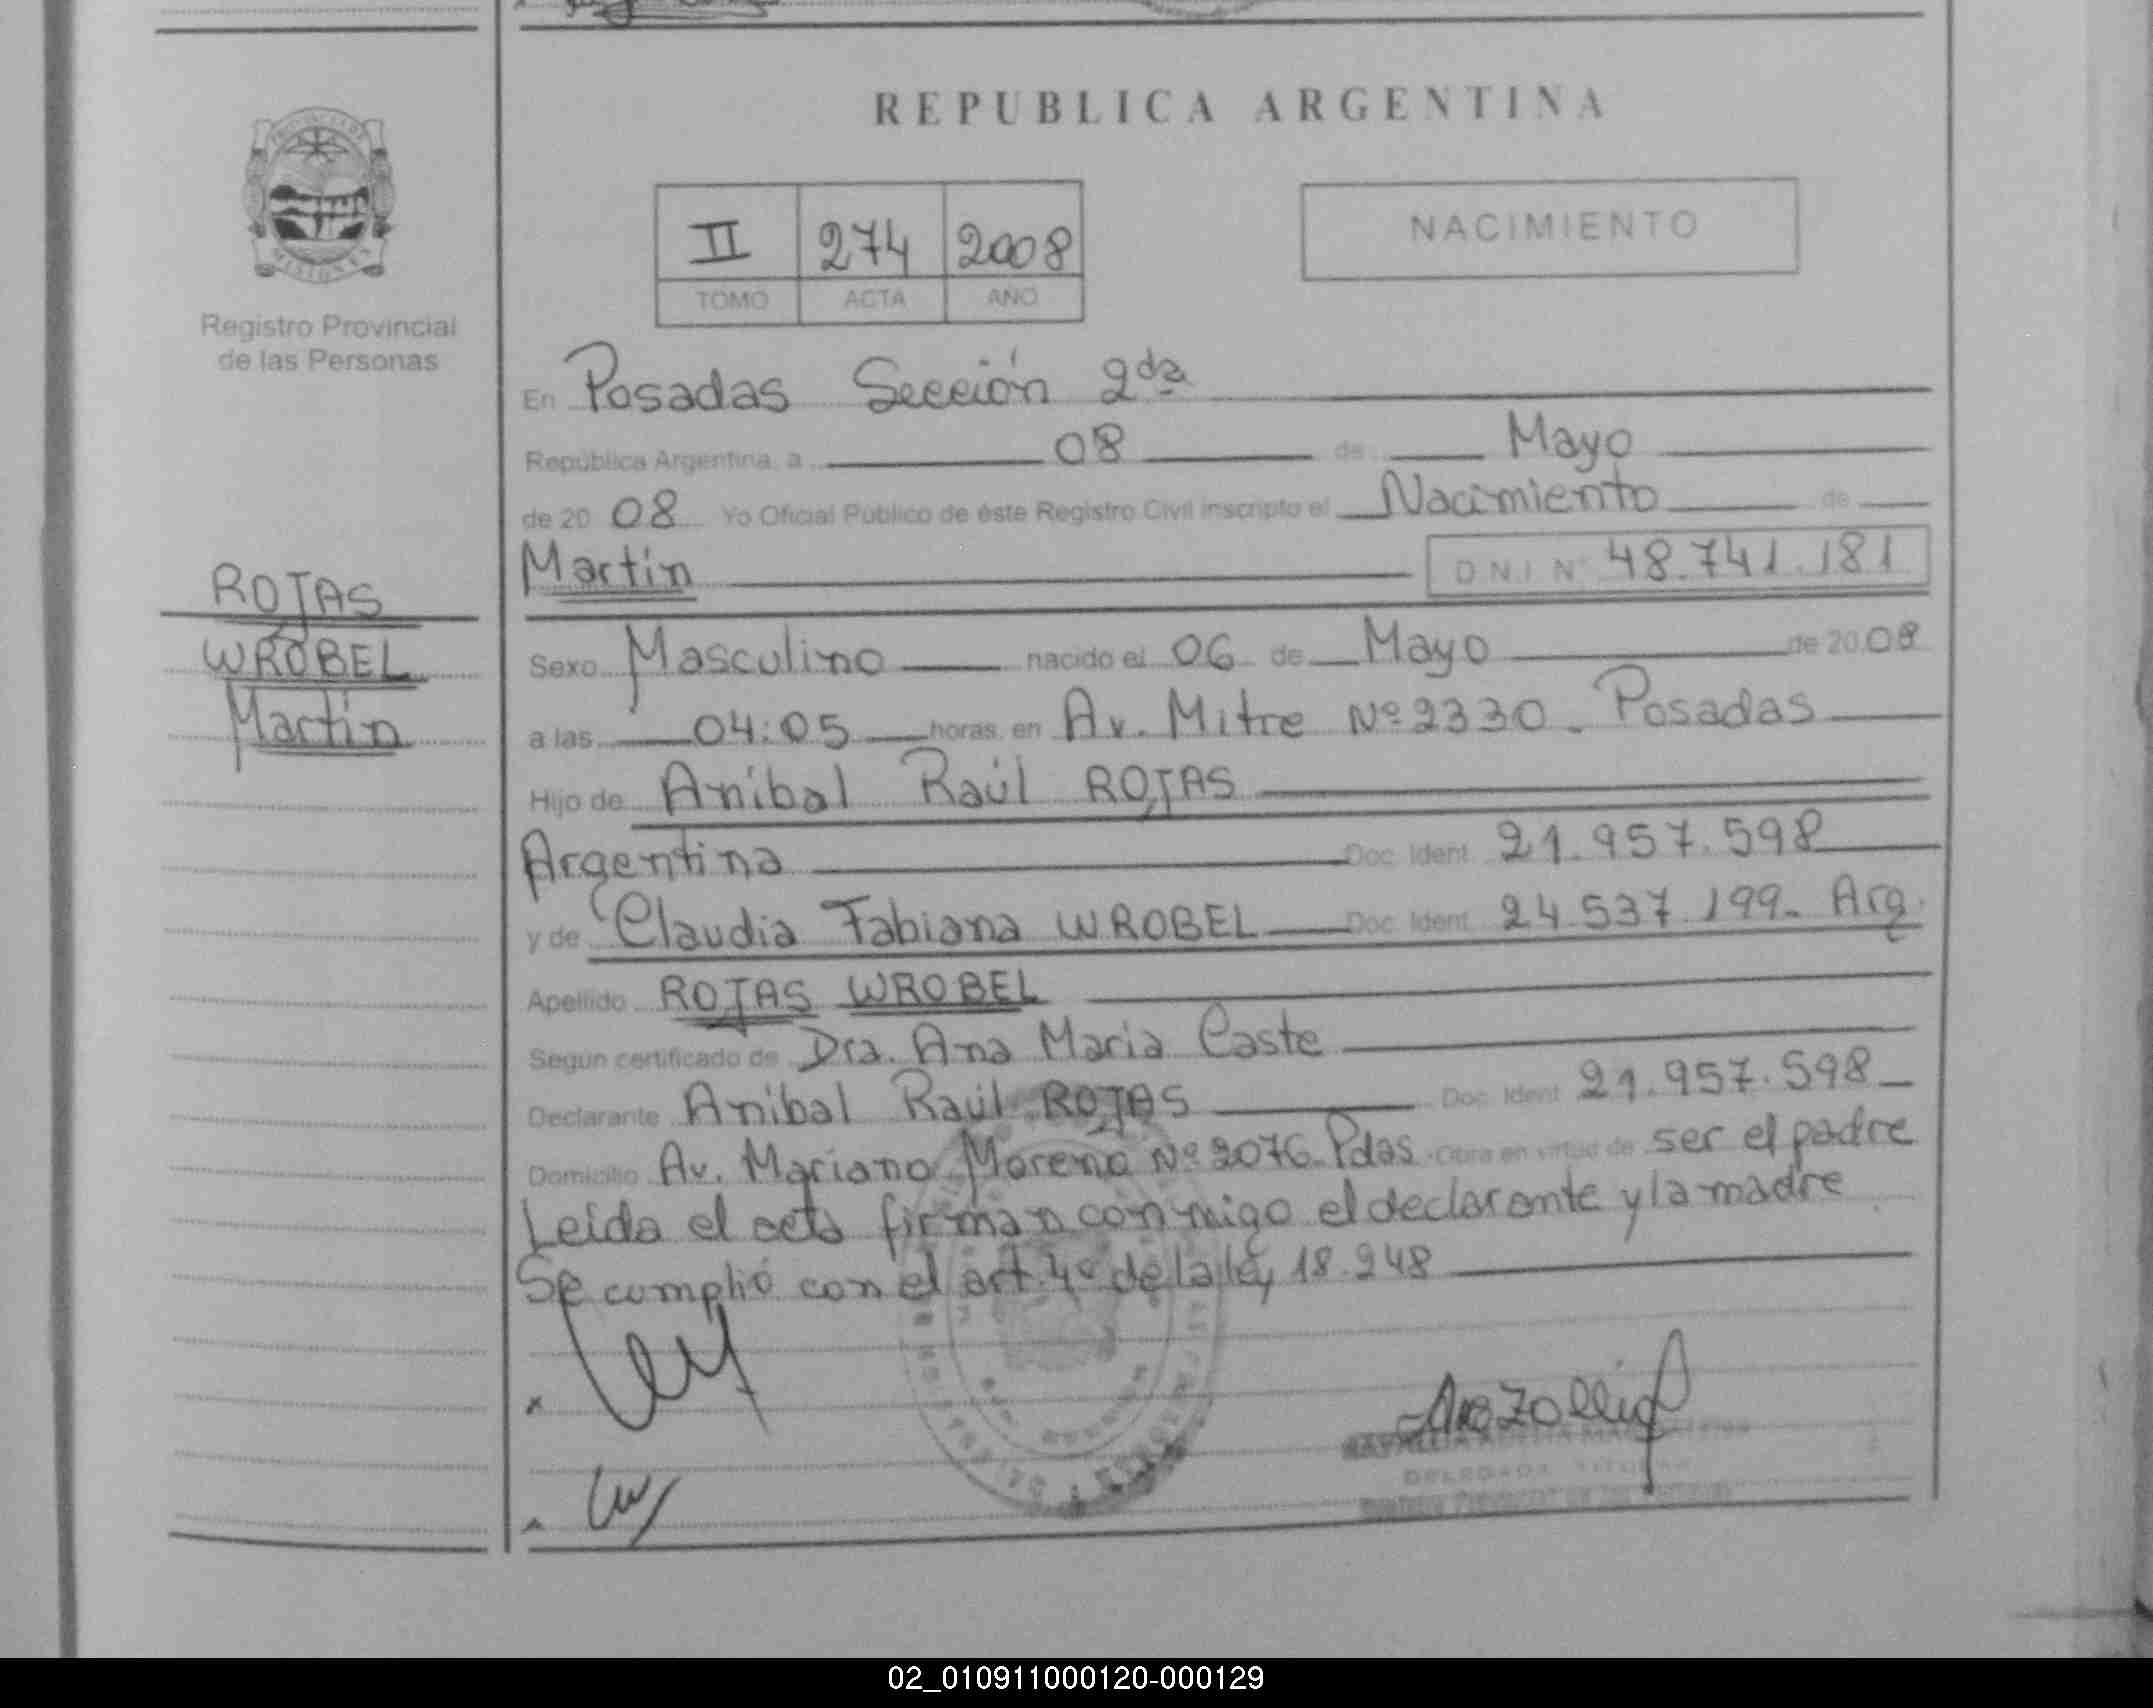 REPUBLICA ARGENTINA
MISIONES
Registro Provincial
de las Personas
II 274 2008
TOMO ACTA AÑO
NACIMIENTO
En Posadas Sección 2da
República Argentina, a 08 de Mayo
de 20 08 Yo Oficial Público de éste Registro Civil inscripto el Nacimiento de
Martín D.N.I. Nº 48.741.181
ROJAS
WROBEL
Martín
Sexo Masculino nacido el 06 de Mayo de 20 08
a las 04:05 horas, en Av. Mitre Nº 2330 - Posadas
Hijo de Aníbal Raúl ROJAS
Argentina Doc. Ident. 21.957.598
y de Claudia Fabiana WROBEL Doc. Ident. 24.537.199 - Arg.
Apellido ROJAS WROBEL
Según certificado de Dra. Ana Maria Caste
Declarante Aníbal Raúl ROJAS Doc. Ident. 21.957.598
Domicilio Av. Mariano Moreno Nº 2076 - Pdas. Obra en virtud de ser el padre
Leída el acta firman conmigo el declarante y la madre
Se cumplió con el art. 4º de la ley 18.248
DELEGADA TITULAR
Registro Provincial de las Personas
02_010911000120-000129